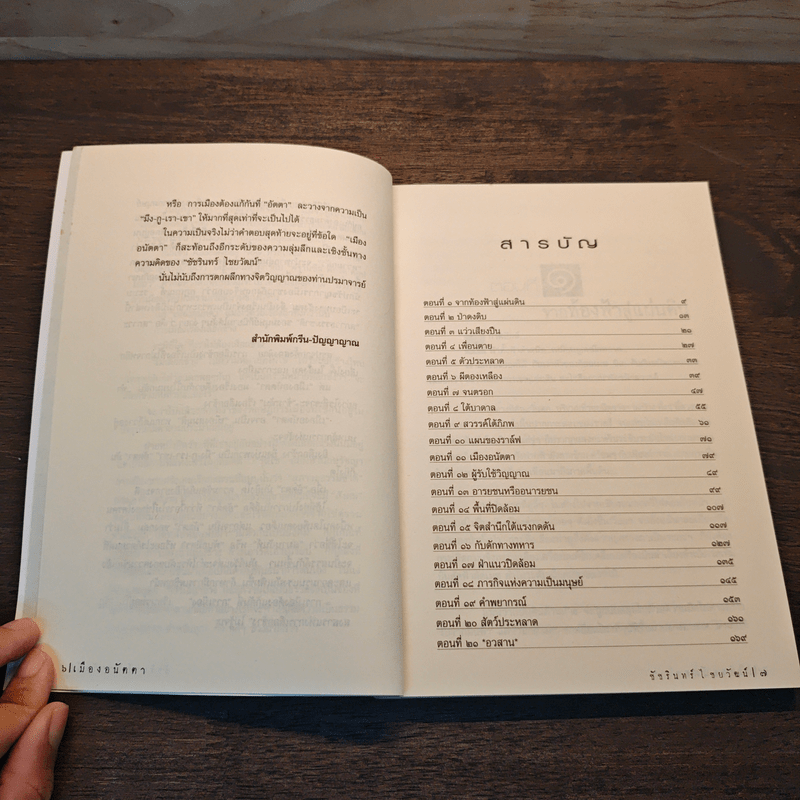 หรือ การเมืองต้องแก้กันที่ "อัตตา" ละวางจากความเป็น
"มึง-กู-เรา-เขา" ให้มากที่สุดเท่าที่จะเป็นไปได้
ในความเป็นจริงไม่ว่าคำตอบสุดท้ายจะอยู่ที่ข้อใด "เมือง
อนัตตา" ก็สะท้อนถึงอีกระดับของความลุ่มลึกและเชิงชั้นทาง
ความคิดของ "ชัชรินทร์ ไชยวัฒน์"
นั่นไม่นับถึงการตกผลึกทางจิตวิญญาณของท่านปรมาจารย์
สำนักพิมพ์กรีน-ปัญญาญาณ
๖|เมืองอนัตตา
สารบัญ
ตอนที่ ๑ จากท้องฟ้าสู่แผ่นดิน ๙
ตอนที่ ๒ ป่าดงดิบ ๑๓
ตอนที่ ๓ แว่วเสียงปืน ๒๑
ตอนที่ ๔ เพื่อนตาย ๒๗
ตอนที่ ๕ ตัวประหลาด ๓๓
ตอนที่ ๖ ผีตองเหลือง ๓๙
ตอนที่ ๗ จนตรอก ๔๗
ตอนที่ ๘ ใต้บาดาล ๕๕
ตอนที่ ๙ สวรรค์ใต้ภิภพ ๖๑
ตอนที่ ๑๐ แผนของราล์ฟ ๗๑
ตอนที่ ๑๑ เมืองอนัตตา ๗๙
ตอนที่ ๑๒ ผู้รับใช้วิญญาณ ๘๙
ตอนที่ ๑๓ อารยชนหรืออนารยชน ๙๙
ตอนที่ ๑๔ พื้นที่ปิดล้อม ๑๐๗
ตอนที่ ๑๕ จิตสำนึกใต้แรงกดดัน ๑๑๗
ตอนที่ ๑๖ กับดักทางทหาร ๑๒๗
ตอนที่ ๑๗ ฝ่าแนวปิดล้อม ๑๓๕
ตอนที่ ๑๘ ภารกิจแห่งความเป็นมนุษย์ ๑๔๕
ตอนที่ ๑๙ คำพยากรณ์ ๑๕๓
ตอนที่ ๒๐ สัตว์ประหลาด ๑๖๑
ตอนที่ ๒๑ "อวสาน" ๑๖๙
ชัชรินทร์ ไชยวัฒน์|๗